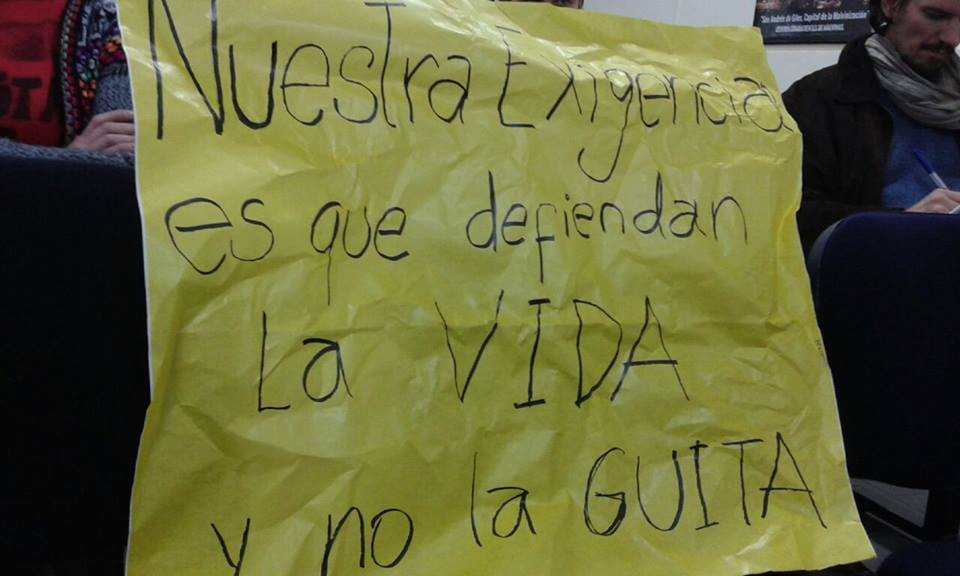 "San Andrés de Giles, Capital de la Malvinización
Nuestra Exigencia
es que defiendan
La VIDA
y no la GUITA